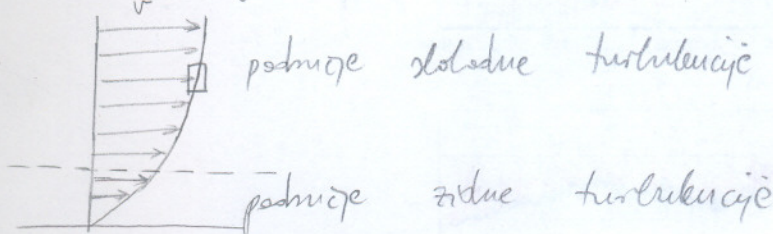 v
područje slobodne turbulencije
područje zidne turbulencije